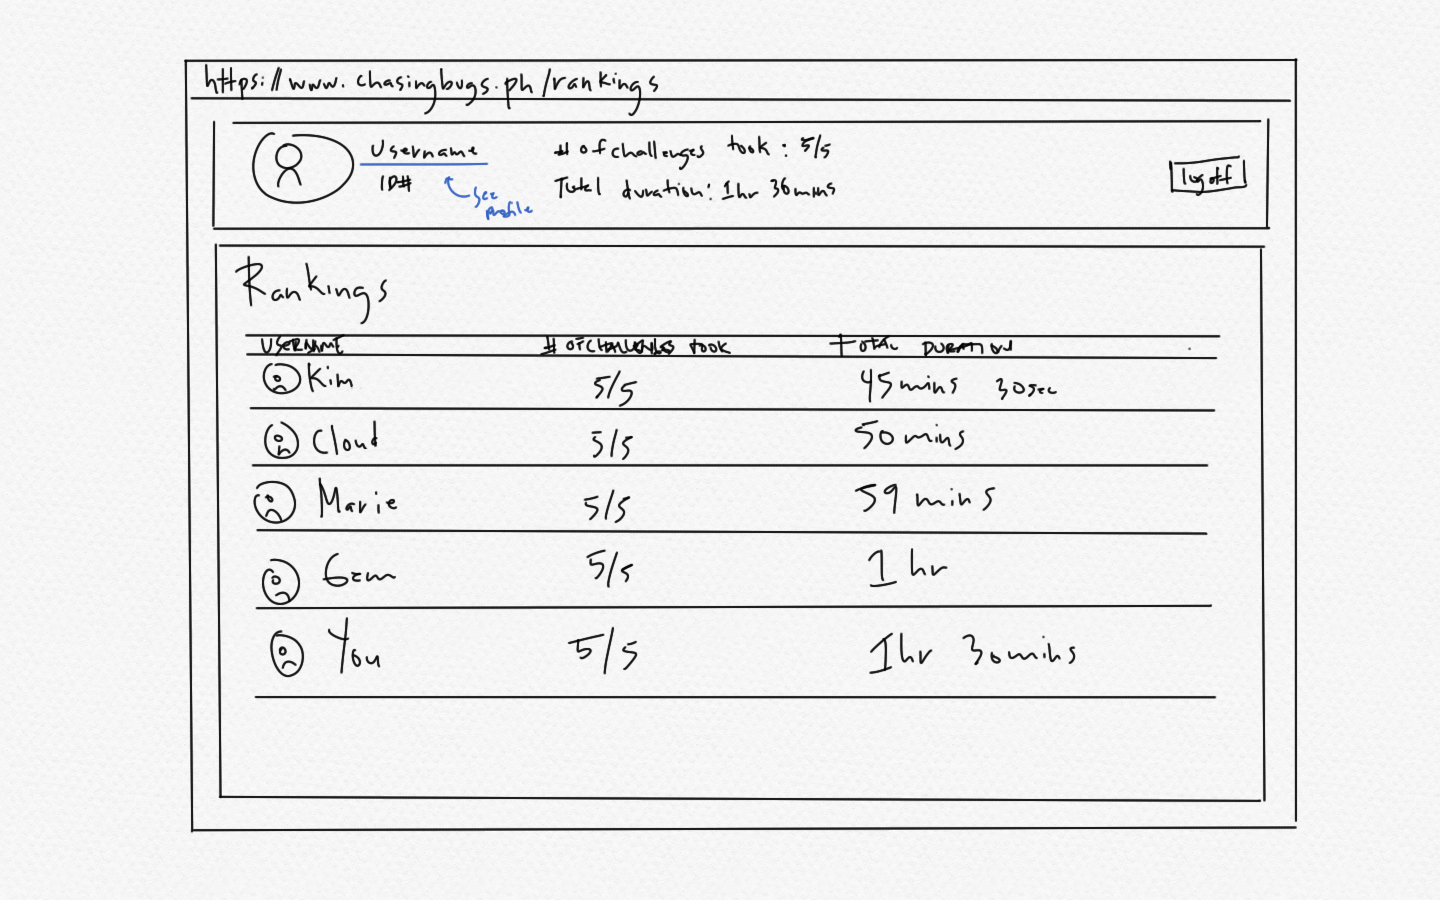 https://www.chasingbugs.ph/rankings
Username
ID#
see
profile
# of challenges took: 5/5
Total duration: 1hr 36mins
log off
Rankings
USERNAME # OF CHALLENGES TOOK TOTAL DURATION
Kim 5/5 45mins 30sec
Cloud 5/5 50mins
Marie 5/5 59 mins
5/5 1 hr
You 5/5 1hr 30mins